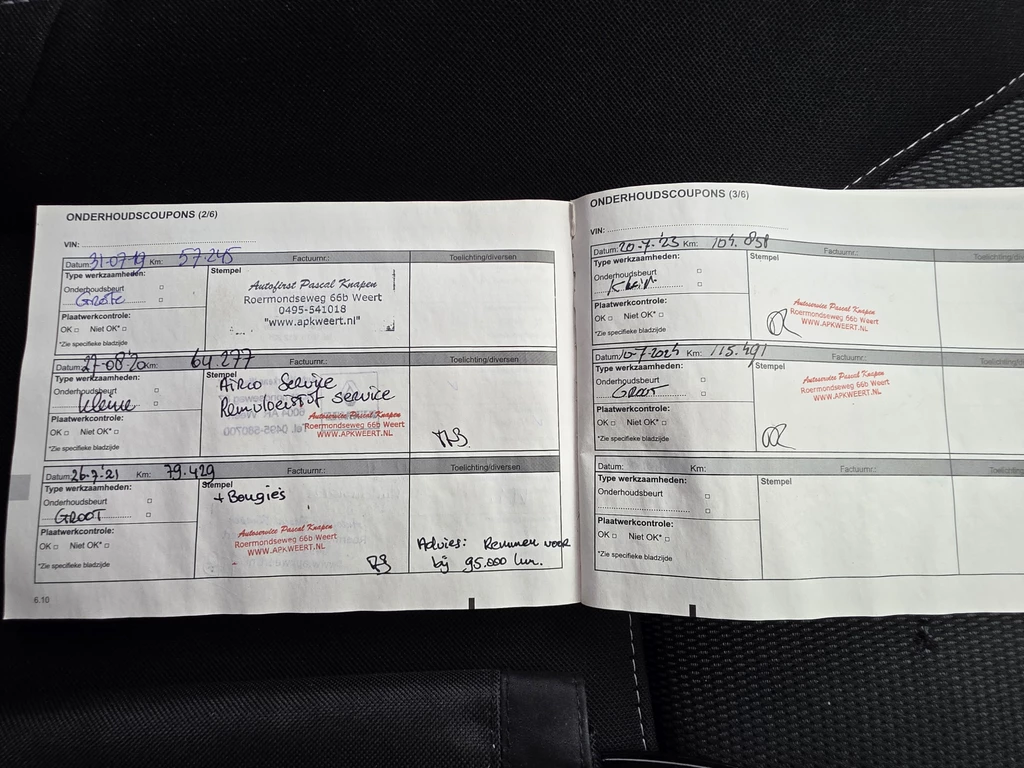 ONDERHOUDSCOUPONS (2/6)
VIN:
Datum: 31-07-19 Km: 57.245 Factuurnr.: Toelichting/diversen
Type werkzaamheden:
Onderhoudsbeurt
Grote
Plaatwerkcontrole:
OK Niet OK*
*Zie specifieke bladzijde
Stempel
Autofirst Pascal Knapen
Roermondseweg 66b Weert
0495-541018
"www.apkweert.nl"
Datum: 27-08-20 Km: 64.277 Factuurnr.: Toelichting/diversen
Type werkzaamheden:
Onderhoudsbeurt
Kleine
Plaatwerkcontrole:
OK Niet OK*
*Zie specifieke bladzijde
Stempel
Airco Service
Remvloeistof service
Autoservice Pascal Knapen
Roermondseweg 66b Weert
WWW.APKWEERT.NL
Datum: 26-7-21 Km: 79.429 Factuurnr.: Toelichting/diversen
Type werkzaamheden:
Onderhoudsbeurt
GROOT
Plaatwerkcontrole:
OK Niet OK*
*Zie specifieke bladzijde
Stempel
+ Bougies
Autoservice Pascal Knapen
Roermondseweg 66b Weert
WWW.APKWEERT.NL
Advies: Remmen voor
bij 95.000 km.
6.10
ONDERHOUDSCOUPONS (3/6)
VIN:
Datum: 20-7-'23 Km: 104.858 Factuurnr.:
Type werkzaamheden:
Onderhoudsbeurt
Klein
Plaatwerkcontrole:
OK Niet OK*
*Zie specifieke bladzijde
Stempel
Autoservice Pascal Knapen
Roermondseweg 66b Weert
WWW.APKWEERT.NL
Datum: 10-7-2024 Km: 115.491 Factuurnr.:
Type werkzaamheden:
Onderhoudsbeurt
GROOT
Plaatwerkcontrole:
OK Niet OK*
*Zie specifieke bladzijde
Stempel
Autoservice Pascal Knapen
Roermondseweg 66b Weert
WWW.APKWEERT.NL
Datum: Km: Factuurnr.:
Type werkzaamheden:
Onderhoudsbeurt
Plaatwerkcontrole:
OK Niet OK*
*Zie specifieke bladzijde
Stempel